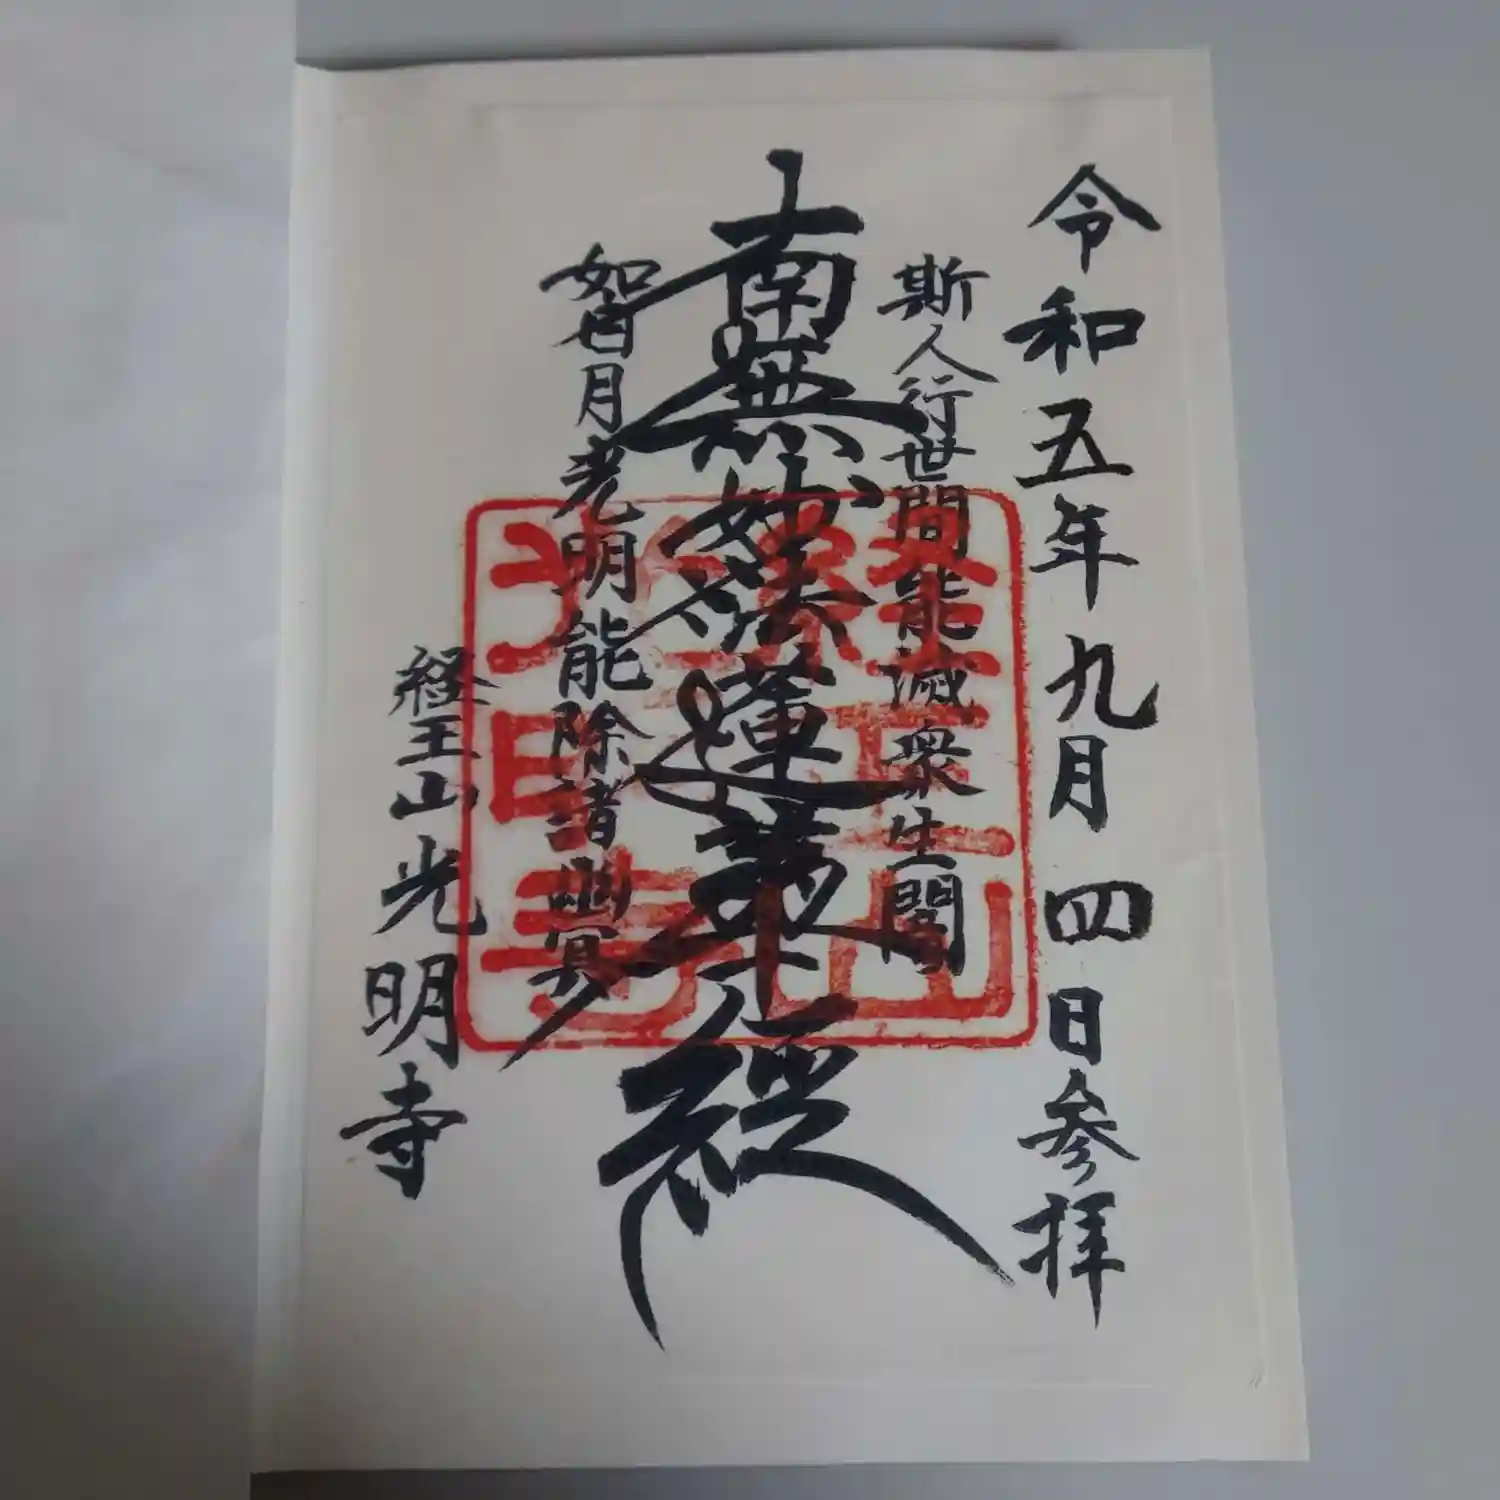 令和五年九月四日参拝
斯人行世間能滅衆生闇
南無妙法蓮華経
如日月光明能除諸幽冥
経王山光明寺
經王山
光明寺